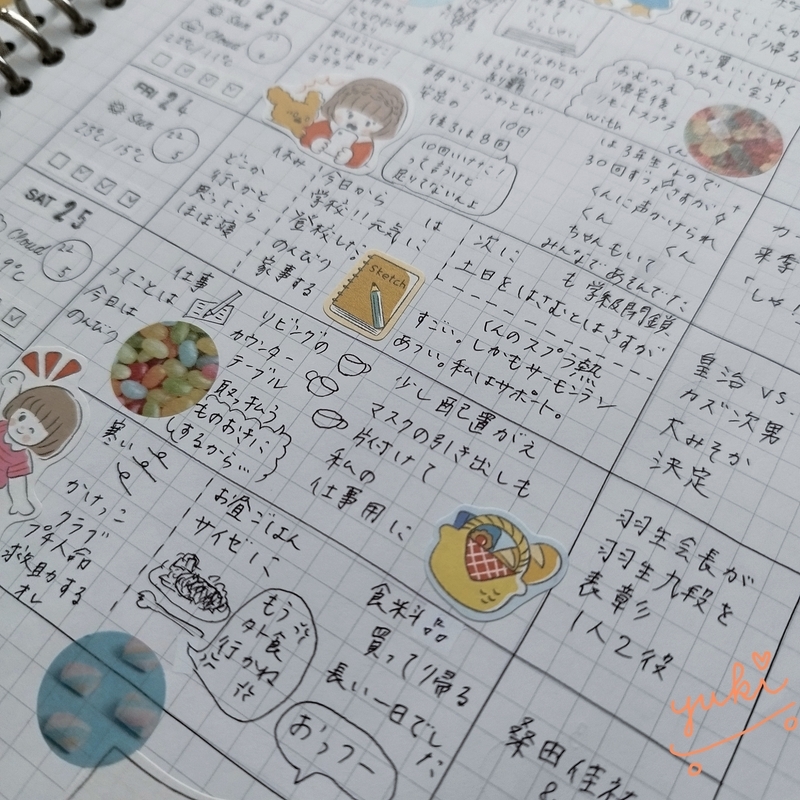 23
Sun
Cloud
23℃/11℃
FRI 24
Sun
22
5
23℃/15℃
どこか
行くかと
思ってたら
ほぼ寝
休み
今日から
学校!! 元気に
登校した。
のんびり
家事する
昨日から
安定の
なわとび
10回
後ろは8回
10回いけた!
ってまうけど
足りてないんよ
はなわとび
おむかえ
帰宅後
リモートスプラ
with
くん
とパン買いにゆく
ちゃんに会う!
は3年生なので
30回ずつ
さすが
くんに声かけられ
くん
くん
ちゃんもいて
みんなであそんでた
次に
も学級閉鎖
土日をはさむとはさすが
SAT 25
Cloud
22
5
9℃
ってことは
今日は
のんびり
仕事
リビングの
カウンター
テーブル
取っ払う
ものお下に
するから…
Sketch
くんのスプラ熱
すごい。しかもサーモンラン
あつい。私はサポート。
少し配置がえ
マスクの引き出しも
片付けて
私の
仕事用に
皇治 VS.
カズ次男
大みそか
決定
寒い
かけっこ
クラブ
プチ人命
救助する
オレ
お昼ごはん
サイゼに
もう
外食
行かね
食米斗品
買って帰る
長い一日でした
おうフー
羽生会長が
羽生九段を
表彰
1人2役
桑田佳祐
&
yuki